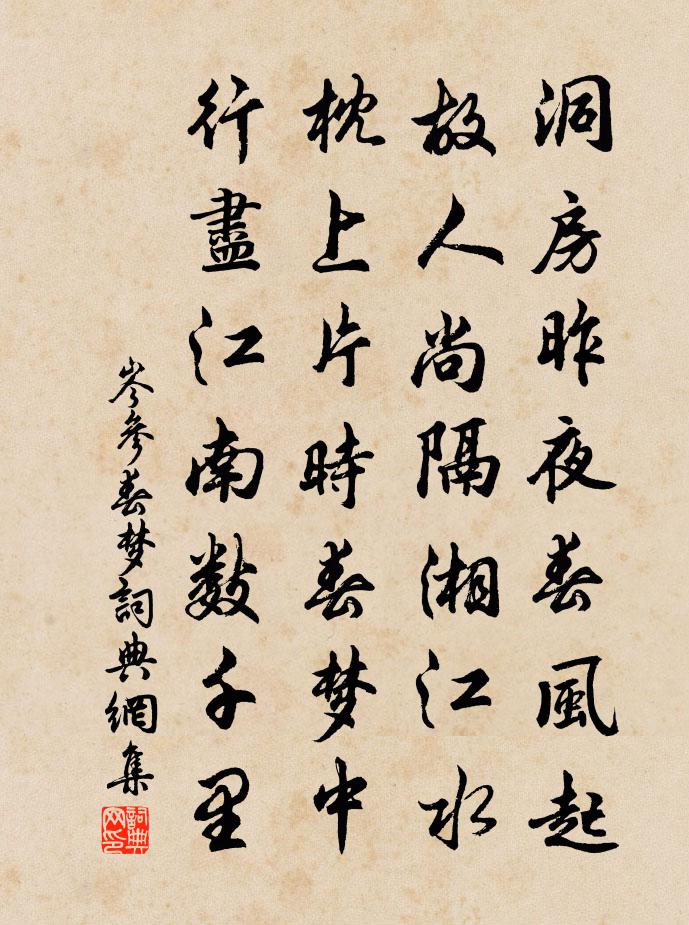 洞房昨夜春風起
故人尚隔湘江水
枕上片時春梦中
行盡江南数千里
岑參春梦詞典網集
詞典网印